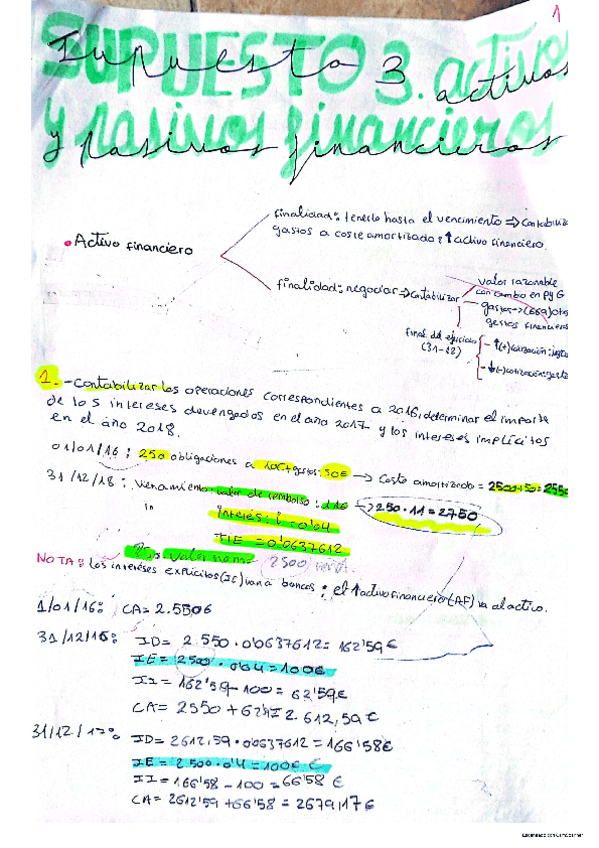 1
SUPUESTO 3. activos
y pasivos financieros
• Activo financiero
finalidad: tenerlo hasta el vencimiento ⇒ Contabiliza
gastos a coste amortizado: ↑ activo financiero.
finalidad: negociar → Contabilizar
valor razonable
con cambio en PyG
gastos → (669) otros
gastos financieros
final del ejercicio
(31-12)
↑(+) cotización:
↓(-) cotización:
1.- Contabilizar las operaciones correspondientes a 2016, determinar el importe
de los intereses devengados en el año 2017 y los intereses implícitos
en el año 2018.
01/01/16: 250 obligaciones a 10€ + gastos: 50€ → Coste amortizado = 2500+50 = 2550
31/12/18: valor de rembolso: 11€ → 250·11 = 2750
interés: i = 0'04
TIE = 0'0637612
valor nom= 2500
NOTA: Los intereses explícitos (IE) van a bancos; el ↑ activo financiero (AF) va al activo.
1/01/16: CA = 2.550€
31/12/16: ID = 2.550·0'0637612 = 162'59€
IE = 2500·0'04 = 100€
II = 162'59 - 100 = 62'59€
CA = 2550 + 62'59 = 2.612,59€
31/12/17: ID = 2612,59·0'0637612 = 166'58€
IE = 2.500·0'4 = 100€ €
II = 166'58 - 100 = 66'58 €
CA = 2612'59 + 66'58 = 2679,17€